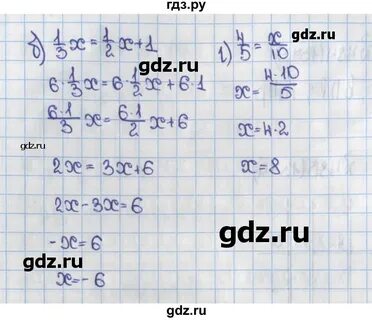 гдз.ру
б) 1/3 x = 1/2 x + 1
6 · 1/3 x = 6 · 1/2 x + 6 · 1
6·1/3 x = 6·1/2 x + 6
2x = 3x + 6
2x - 3x = 6
-x = 6
x = -6
г) 4/5 = x/10
x = 4·10/5
x = 4 · 2
x = 8
gdz.ru
gdz.ru
gdz.ru
gdz.ru
gdz.ru